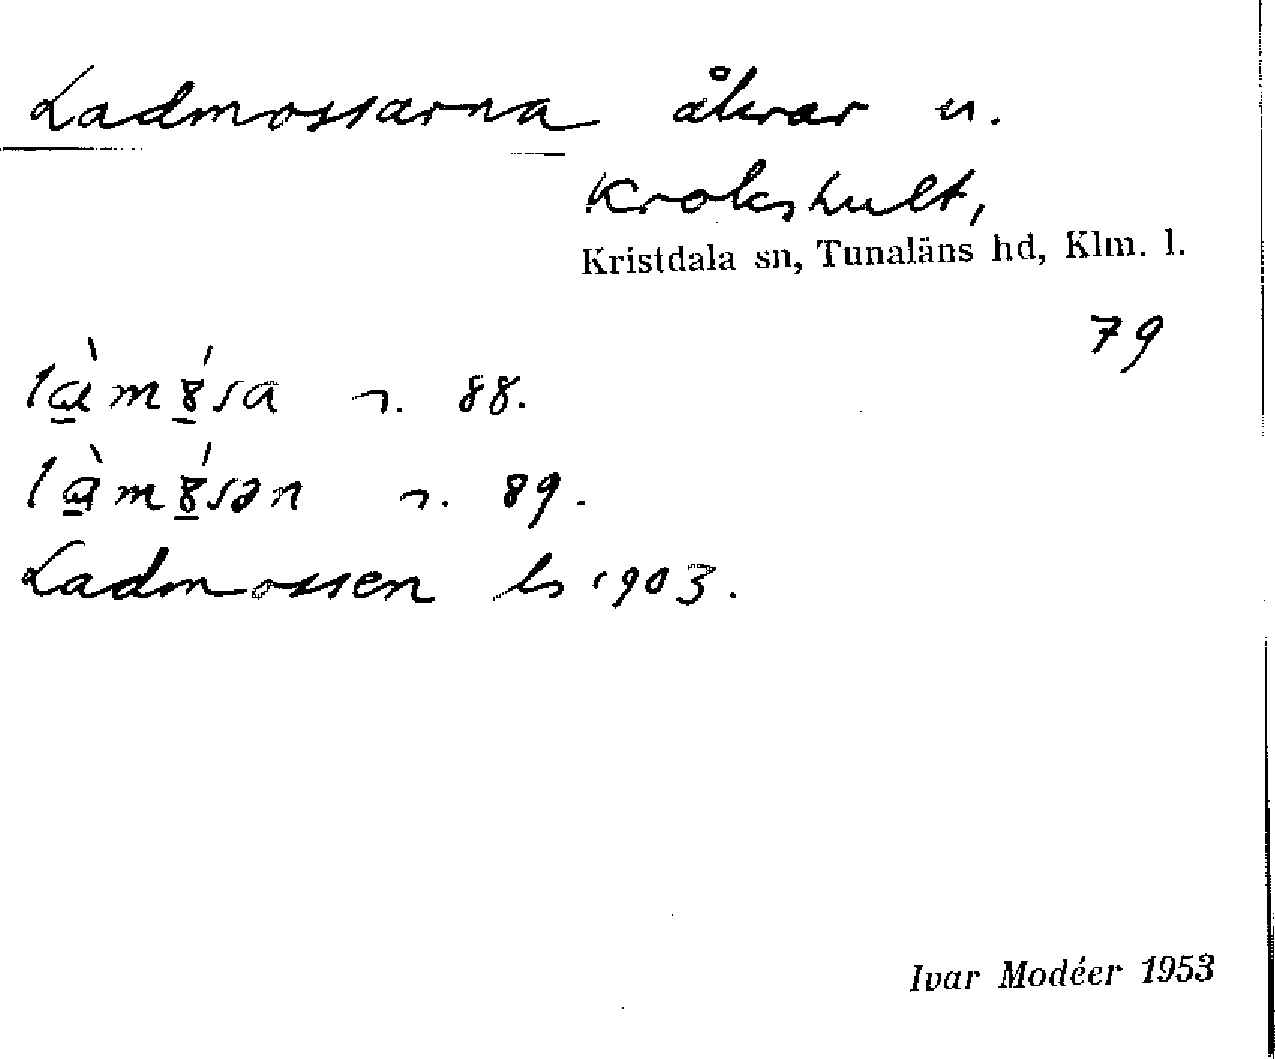 Ladmossarna åkrar u.
Krokshult,
Kristdala sn, Tunaläns hd, Klm. l.
79
88.
89.
Ladmossen ls 1903.
Ivar Modéer 1953